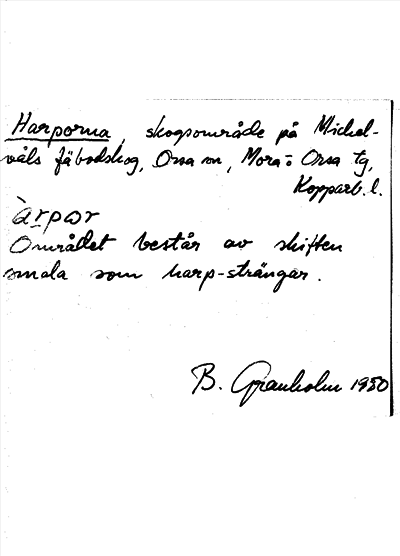 Harporna, skogsområde på Michel-
våls fäbodskog, Orsa sn, Mora o Orsa tg,
Kopparb. l.
àrpor
Området består av skiften
smala som harp-strängar.
B. Granholm 1950